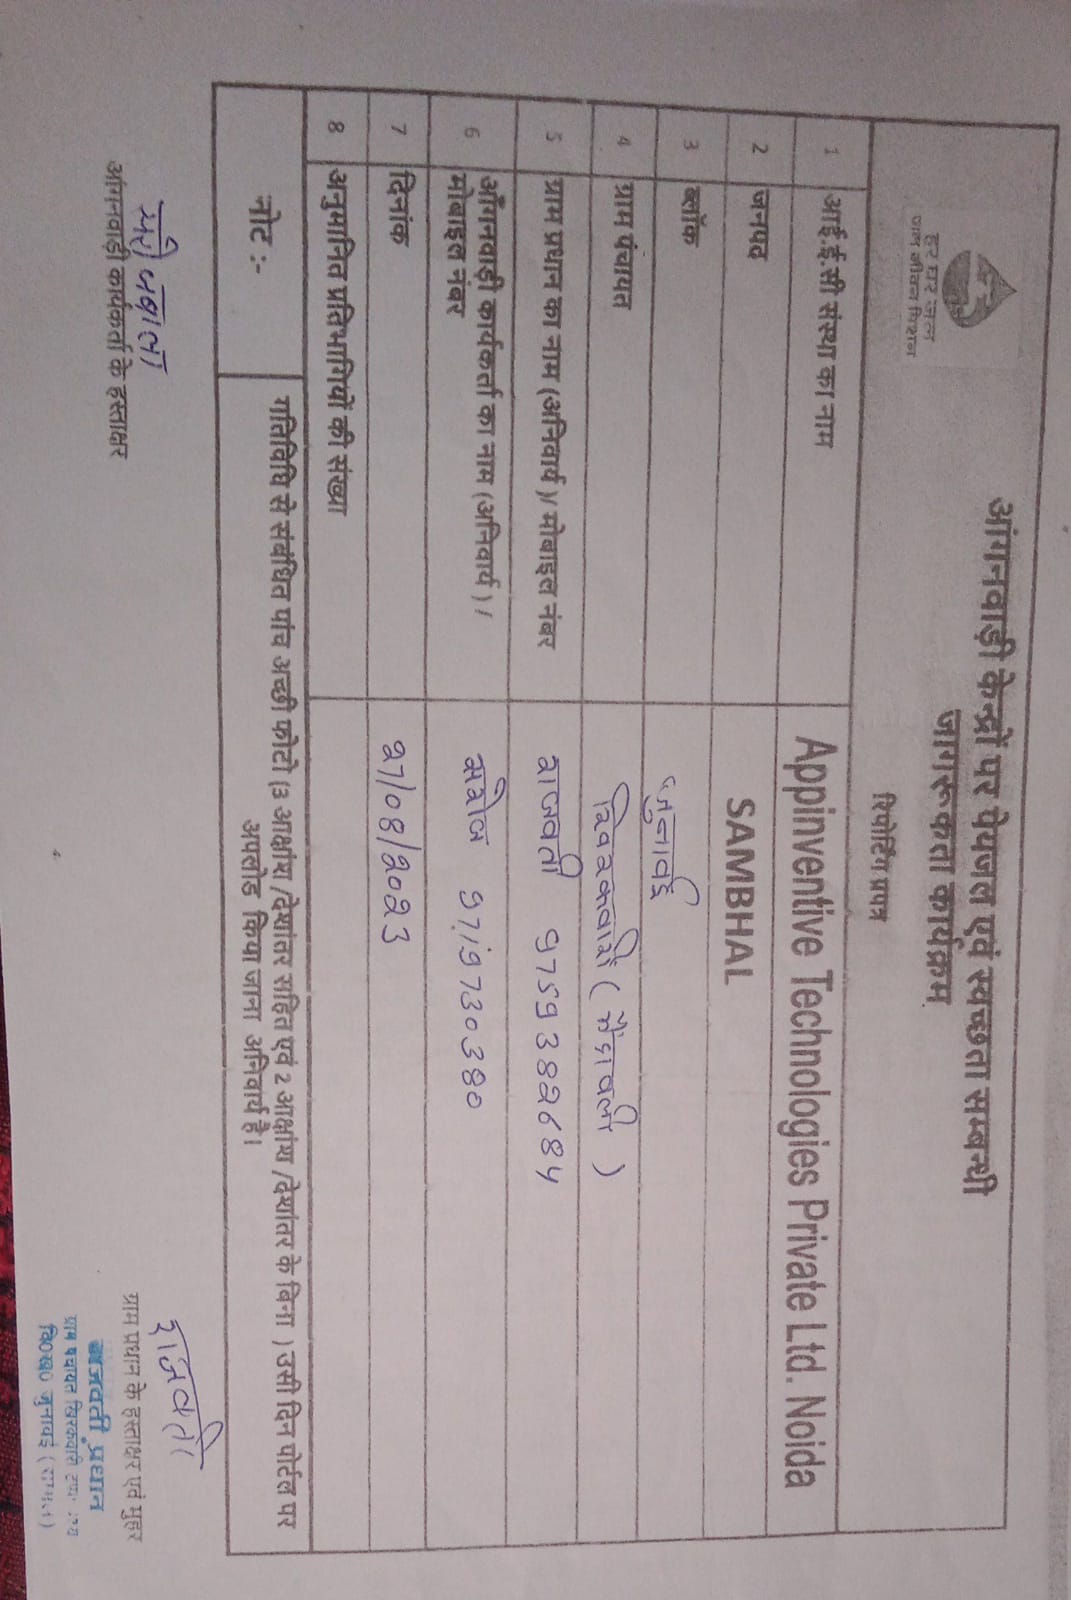 हर घर जल
जल जीवन मिशन
आंगनवाड़ी केन्द्रों पर पेयजल एवं स्वच्छता सम्बन्धी
जागरुकता कार्यक्रम
रिपोर्टिंग प्रपत्र
1 आई.ई.सी संस्था का नाम Appinventive Technologies Private Ltd. Noida
2 जनपद SAMBHAL
3 ब्लॉक जुनावई
4 ग्राम पंचायत
5 ग्राम प्रधान का नाम (अनिवार्य)/ मोबाइल नंबर राजवती 9759382684
6 आँगनवाड़ी कार्यकर्ता का नाम (अनिवार्य) /
मोबाइल नंबर
7 दिनांक 27/08/2023
8 अनुमानित प्रतिभागियों की संख्या
नोट :- गतिविधि से संबंधित पांच अच्छी फोटो (3 आक्षांश /देशांतर सहित एवं 2 आक्षांश /देशांतर के बिना ) उसी दिन पोर्टल पर
अपलोड किया जाना अनिवार्य है।
आंगनवाड़ी कार्यकर्ता के हस्ताक्षर
राजवती
ग्राम प्रधान के हस्ताक्षर एवं मुहर
राजवती प्रधान
ग्राम पंचायत
वि0ख0 जुनावई